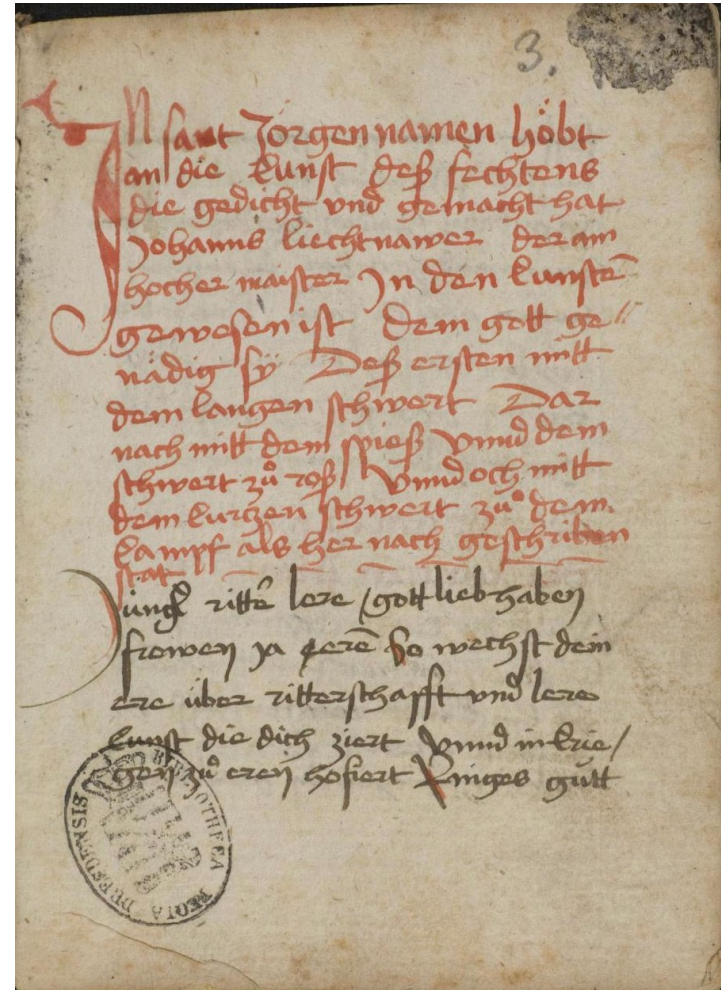 3.
Jn sant Jörgen namen höbt
an die kunst deß fechtens
die gedicht vnd gemacht hat
Johanns liechtnawer der ain
hocher maister Jn den kunstē
gewesen ist dem gott ge//
nädig sÿ Deß ersten mitt
dem langen schwert Dar
nach mitt dem spieß Vnnd dem
schwert zů roß Vnnd och mitt
dem kurtzen schwert zů dem
kampf als her nach geschriben
stat
Jungʼ ritt'e lere / gott lieb haben
frowen ja gerē So wechst dein
ere über ritterschafft vnd lere
kunst die dich ziert Vnnd in krie/
gen zů eren hofiert Ringes gutt
BIBLIOTHECA REGIA DRESDENSIS